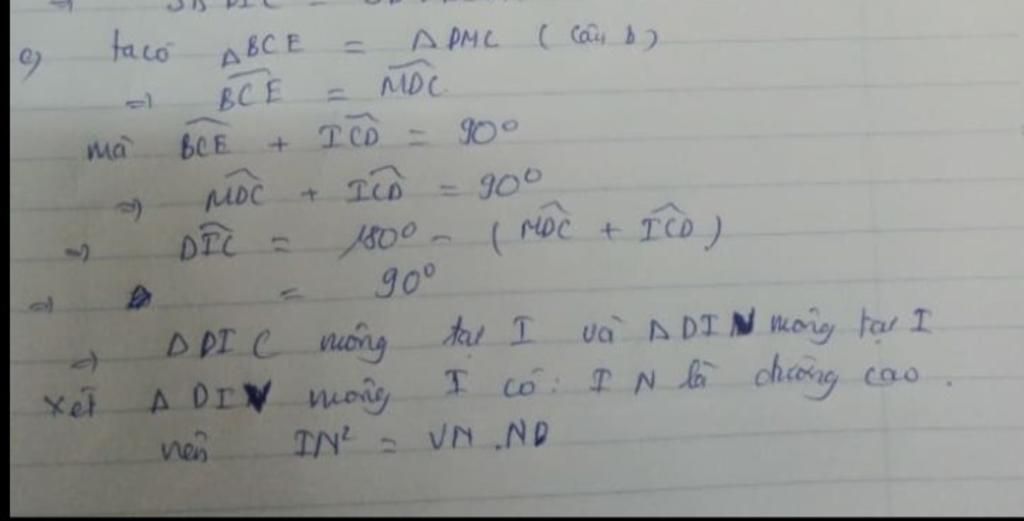 c) ta có △BCE = △DMC (câu b)
=> BCE = MDC
mà BCE + ICD = 90°
=> MDC + ICD = 90°
=> DIC = 180° - (MDC + ICD)
=> = 90°
=> △DIC vuông tại I và △DIN vuông tại I
xét △DIV vuông I có: IN là đường cao.
nên IN² = VN.ND